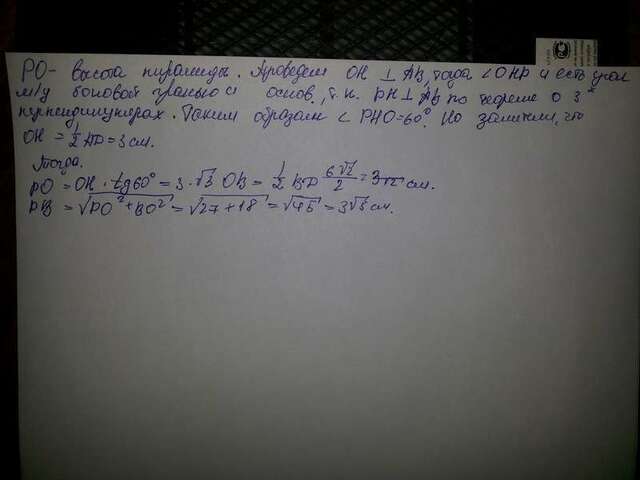 PO- высота пирамиды. Проведем OH ⊥ AB, тогда ∠OHP и есть угол
м/у боковой гранью и основ., т.к. PH ⊥ AB по теореме о 3ˣ
перпендикулярах. Таким образом ∠ PHO=60°. Но заметим, что
OH = 1/2 AD = 3 см.
Тогда.
PO = OH · tg60° = 3 · √3 OB = 1/2 BD 6√2/2 = 3√2 см.
PB = √PO² + BO² = √27 + 18 = √45 = 3√5 см.